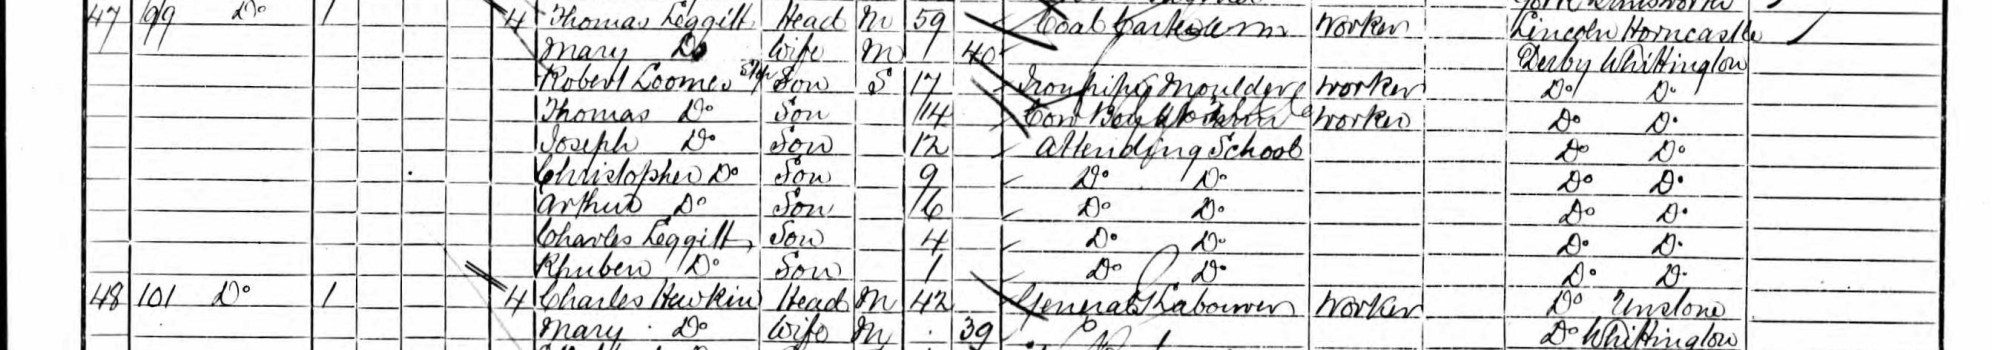 47 99 Do 1 4 Thomas Leggitt Head M 59 Coal worker Lincoln Horncastle
Mary Do Wife M 40 Derby Whittington
Robert Loomes Step Son S 17 Iron pipe Moulder worker Do Do
Thomas Do Son 14 Boy worker Do Do
Joseph Do Son 12 Attending School Do Do
Christopher Do Son 9 Do Do Do Do
Arthur Do Son 6 Do Do Do Do
Charles Leggitt Son 4 Do Do Do Do
Rhuben Do Son 1 Do Do Do Do
48 101 Do 1 4 Charles Hewkin Head M 42 General Labourer Worker Do Unstone
Mary Do Wife M 39 Do Whittington